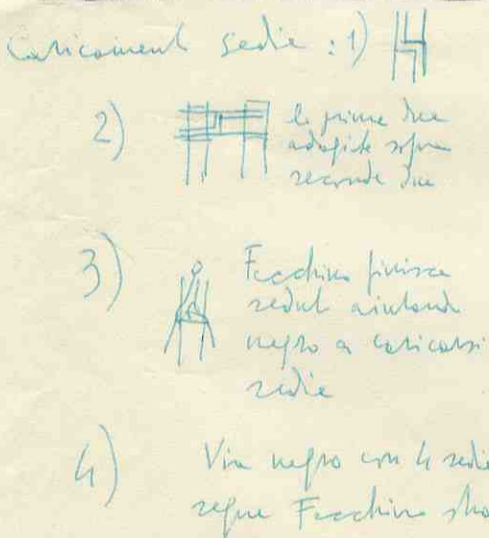 Caricament sedie : 1)
2) le prime due
adagiate sopra
seconde due
3) Facchino finisce
sedut aiutando
negro a caricarsi
sedie
4) Via negro con 4 sedie
segue Facchino